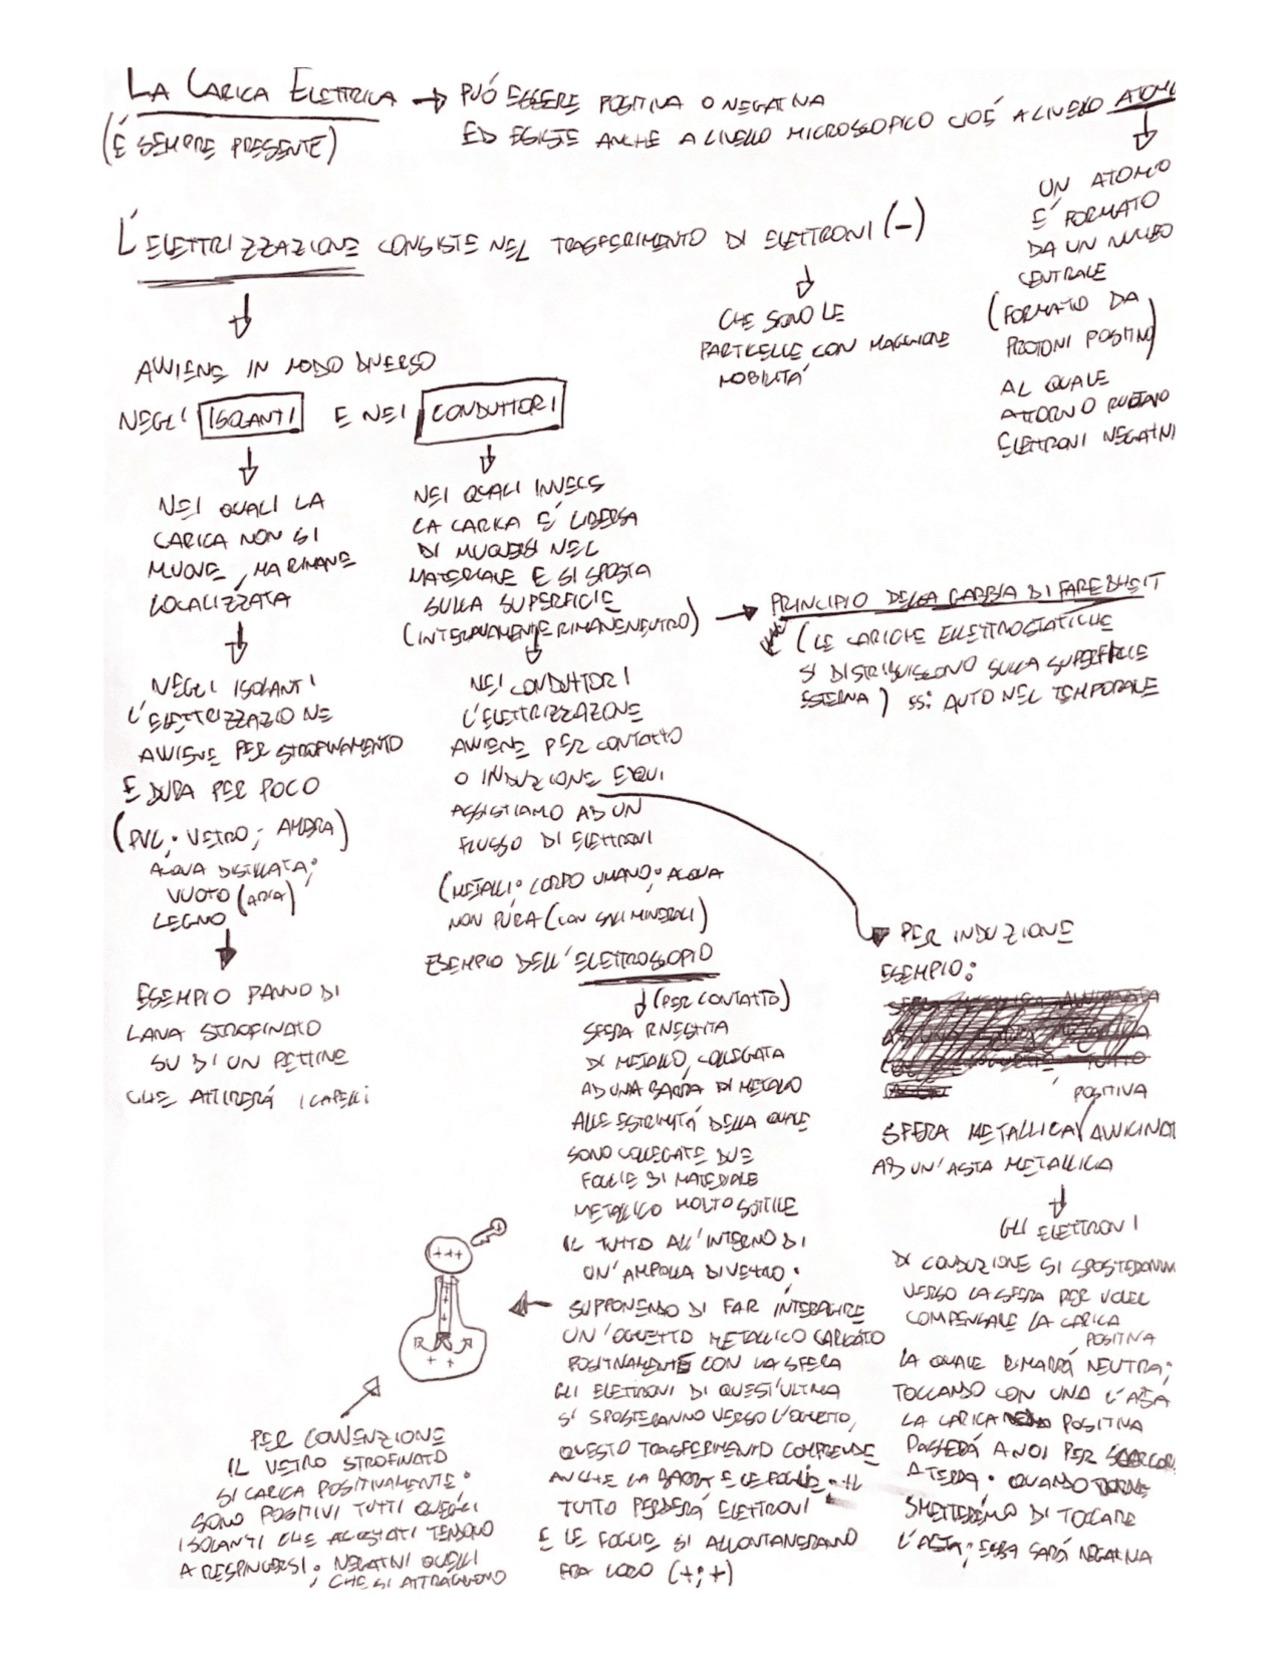 LA CARICA ELETTRICA → PUÓ ESSERE POSITIVA O NEGATIVA
(É SEMPRE PRESENTE)
ED ESISTE ANCHE A LIVELLO MICROSCOPICO CIOÉ A LIVELLO ATOMI
UN ATOMO
E' FORMATO
DA UN NUCLEO
CENTRALE
(FORMATO DA
PROTONI POSITIVI)
AL QUALE
ATTORNO RUOTANO
ELETTRONI NEGATIVI
L'ELETTRIZZAZIONE CONSISTE NEL TRASFERIMENTO DI ELETTRONI (-)
CHE SONO LE
PARTICELLE CON MAGGIORE
MOBILITA'
AVVIENE IN MODO DIVERSO
NEGLI ISOLANTI E NEI CONDUTTORI
NEI QUALI LA
CARICA NON SI
MUOVE, MA RIMANE
LOCALIZZATA
NEGLI ISOLANTI
L'ELETTRIZZAZIONE
AVVIENE PER STROFINAMENTO
E DURA PER POCO
(PVC; VETRO; AMBRA)
ACQUA DISTILLATA;
VUOTO (ARIA)
LEGNO
ESEMPIO PANNO DI
LANA STROFINATO
SU DI UN PETTINE
CHE ATTIRERÁ I CAPELLI
NEI QUALI INVECE
LA CARICA E' LIBERA
DI MUOVERSI NEL
MATERIALE E SI SPOSTA
SULLA SUPERFICIE
(INTERNAMENTE RIMANE NEUTRO) → PRINCIPIO DELLA GABBIA DI FAREDHEIT
(LE CARICHE ELLETTROSTATICHE
SI DISTRIBUISCONO SULLA SUPERFICIE
ESTERNA) ES: AUTO NEL TEMPORALE
NEI CONDUTTORI
L'ELETTRIZZAZIONE
AVVIENE PER CONTATTO
O INDUZIONE E QUI
ASSISTIAMO AD UN
FLUSSO DI ELETTRONI
(METALLI; CORPO UMANO; ACQUA
NON PURA (CON SALI MINERALI)
ESEMPIO DELL'ELETTROSCOPIO
(PER CONTATTO)
SFERA RIVESTITA
DI METALLO, COLLEGATA
AD UNA BARRA DI METALLO
ALLE ESTREMITÁ DELLA QUALE
SONO COLLEGATE DUE
FOGLIE DI MATERIALE
METALLICO MOLTO SOTTILE
IL TUTTO ALL'INTERNO DI
UN'AMPOLLA DI VETRO.
SUPPONENDO DI FAR INTERAGIRE
UN'OGGETTO METALLICO CARICATO
POSITIVAMENTE CON LA SFERA
GLI ELETTRONI DI QUEST'ULTIMA
SI SPOSTERANNO VERSO L'OGGETTO,
QUESTO TRASFERIMENTO COMPRENDE
ANCHE LA BARRA E LE FOGLIE. IL
TUTTO PERDERÁ ELETTRONI
E LE FOGLIE SI ALLONTANERANNO
FRA LORO (+;+)
+++
+
+ +
PER CONVENZIONE
IL VETRO STROFINATO
SI CARICA POSITIVAMENTE.
SONO POSITIVI TUTTI QUEGLI
ISOLANTI CHE ACCOSTATI TENDONO
A RESPINGERSI; NEGATIVI QUELLI
CHE SI ATTRAGGONO
PER INDUZIONE
ESEMPIO:
POSITIVA
SFERA METALLICA AVVICINAT
AD UN'ASTA METALLICA
GLI ELETTRONI
DI CONDUZIONE SI SPOSTERANNO
VERSO LA SFERA PER VOLER
COMPENSARE LA CARICA
POSITIVA
LA QUALE RIMARRÁ NEUTRA;
TOCCANDO CON UNA L'ASTA
LA CARICA POSITIVA
PASSERÁ A NOI PER
A TERRA. QUANDO
SMETTEREMO DI TOCCARE
L'ASTA; ESSA SARÁ NEGATIVA